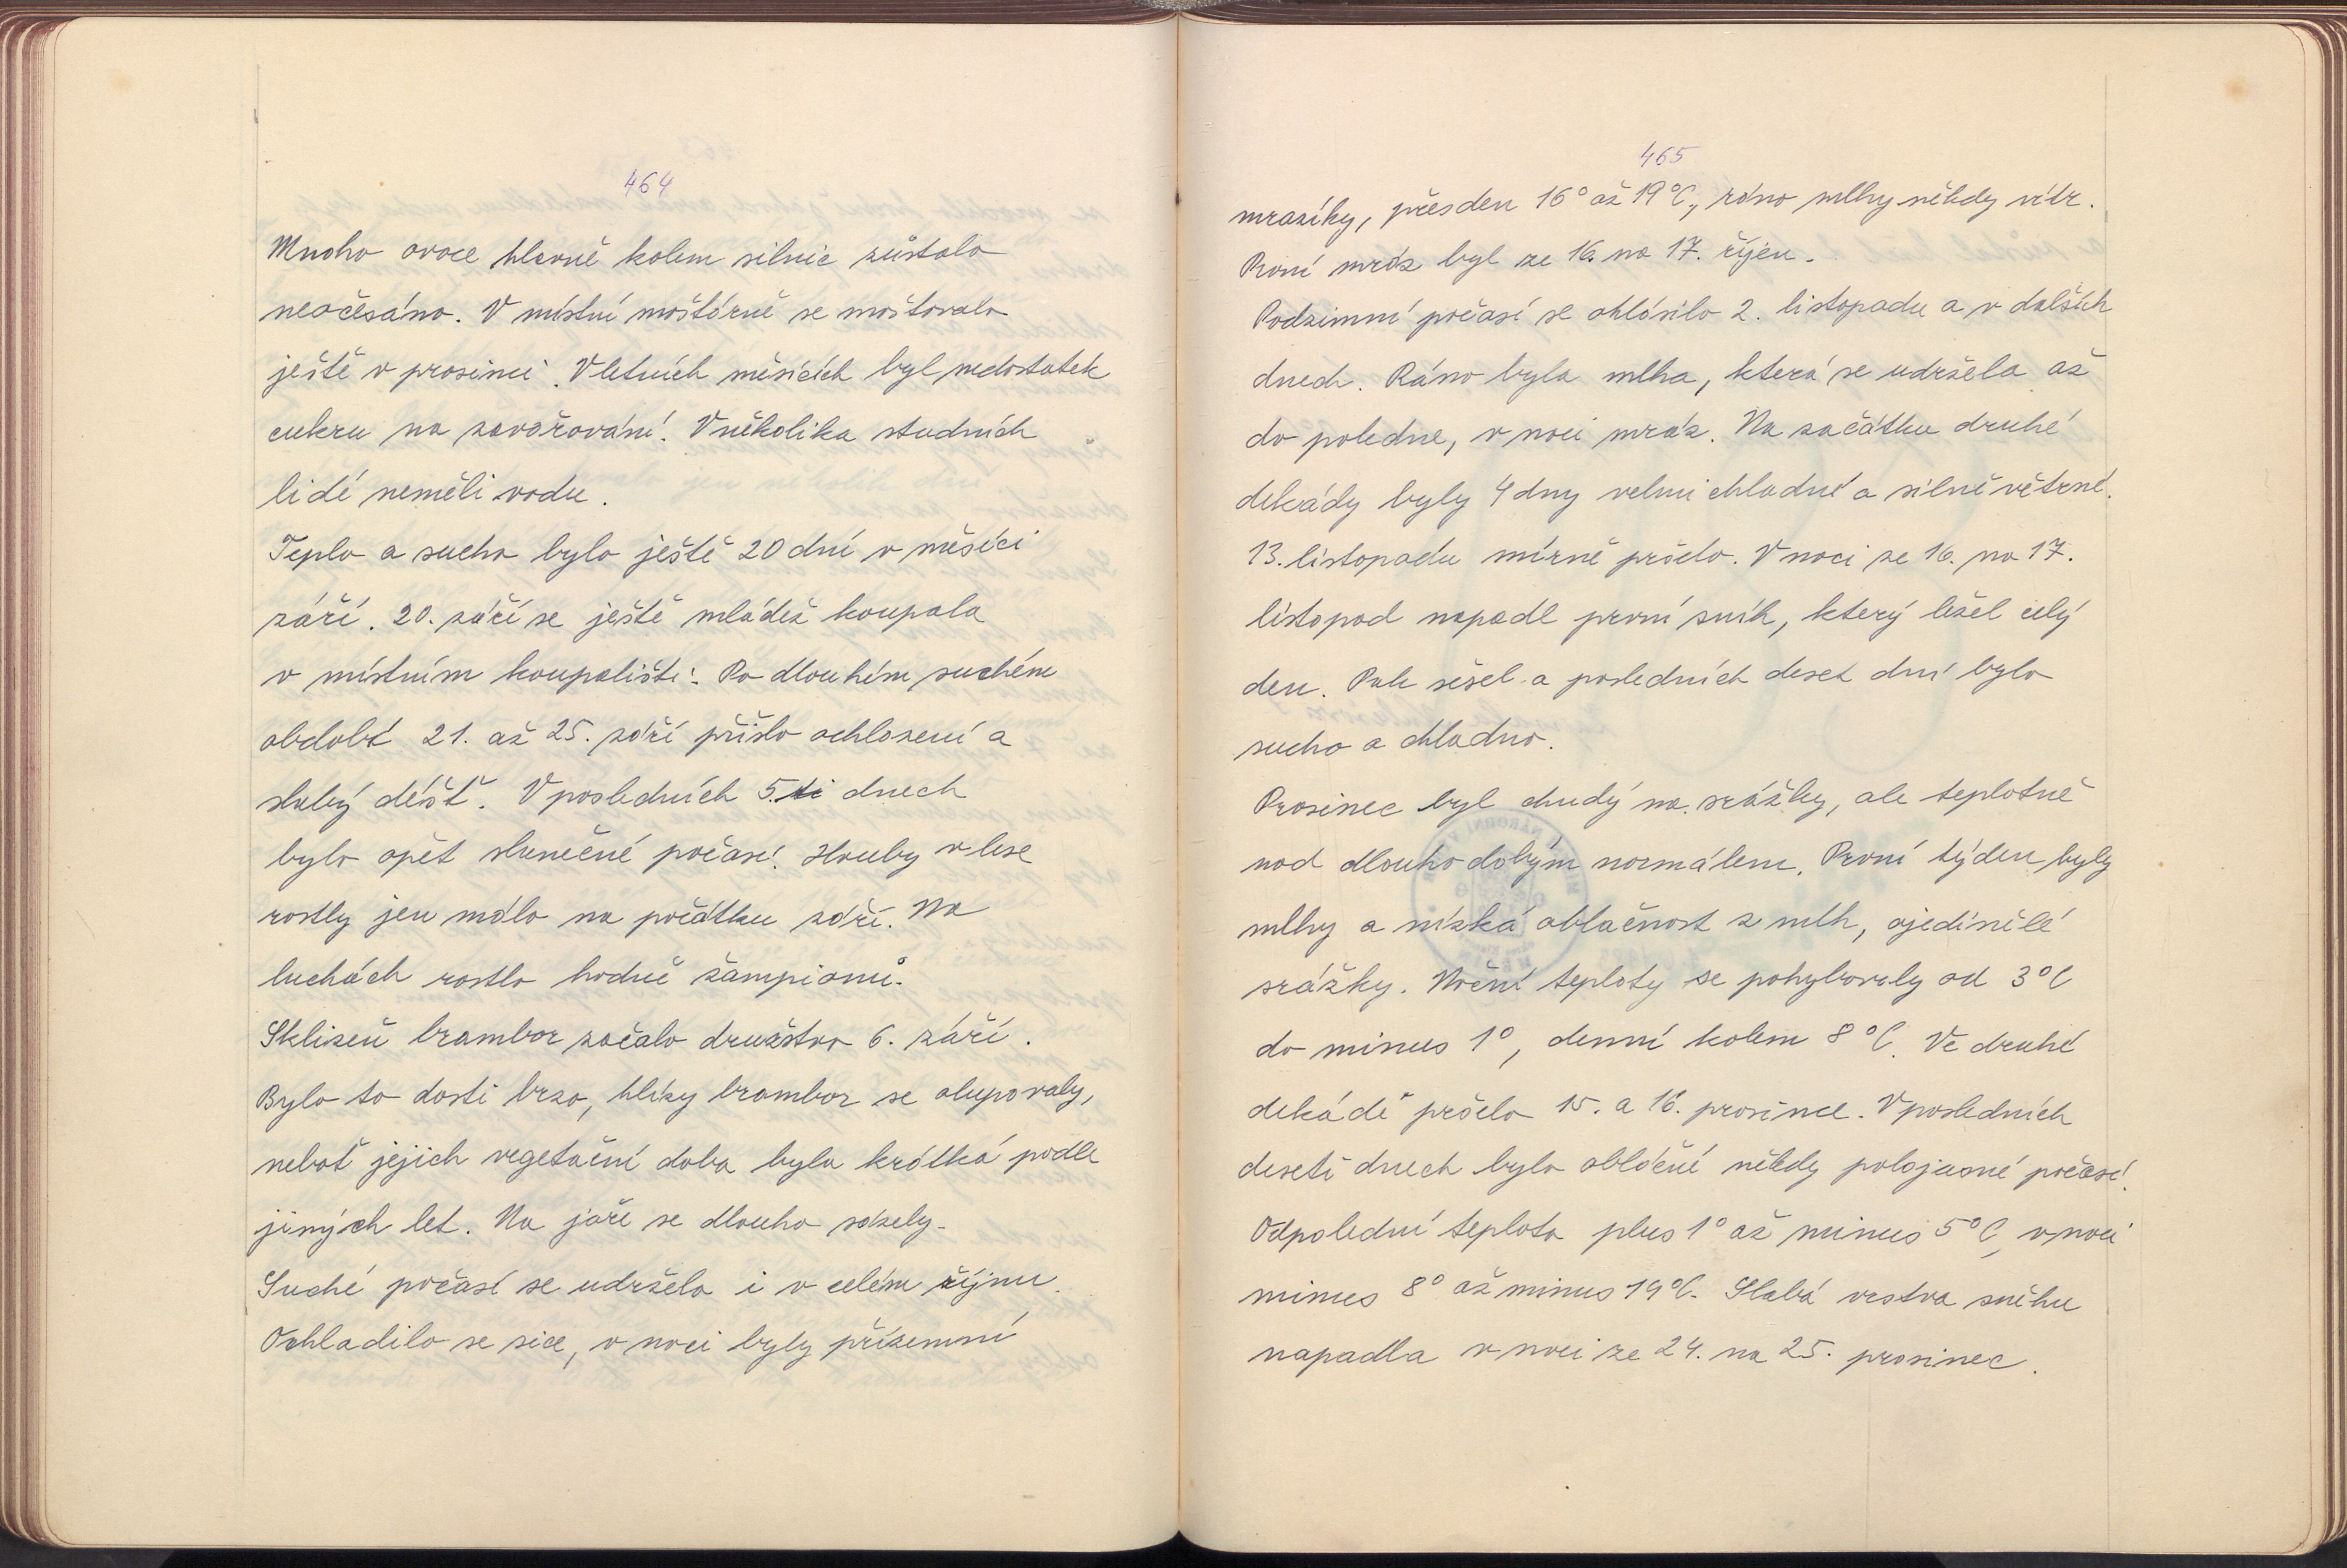 464
Mnoho ovoce hlavně kolem silnic zůstalo
neočesáno. V místní moštárně se moštovalo
ještě v prosinci. V letních měsících byl nedostatek
cukru na zavařování. V několika studních
lidé neměli vodu.
Teplo a sucho bylo ještě 20 dní v měsíci
září. 20. září se ještě mládež koupala
v místním koupališti. Po dlouhém suchém
období 21. až 25. září přišlo ochlazení a
slabý déšť. V posledních 5.ti dnech
bylo opět slunečné počasí. Houby v lese
rostly jen málo na počátku září. Na
lukách rostlo hodně žampionů.
Sklizeň brambor začalo družstvo 6. září.
Bylo to dosti brzo, hlízy brambor se olupovaly,
neboť jejich vegetační doba byla krátká podle
jiných let. Na jaře se dlouho sázely.
Suché počasí se udrželo i v celém říjnu.
Ochladilo se sice, v noci byly přízemní
465
mrazíky, přes den 16° až 19°C, ráno mlhy někdy vítr.
První mráz byl ze 16. na 17. říjen.
Podzimní počasí se ohlásilo 2. listopadu a v dalších
dnech. Ráno byla mlha, která se udržela až
do poledne, v noci mráz. Na začátku druhé
dekády byly 4 dny velmi chladné a silně větrné.
13. listopadu mírně pršelo. V noci ze 16. na 17.
listopad napadl první sníh, který ležel celý
den. Pak sešel a posledních deset dní bylo
sucho a chladno.
Prosinec byl chudý na srážky, ale teplotně
nad dlouhodobým normálem. První týden byly
mlhy a nízká oblačnost z mlh, ojedinělé
srážky. Noční teploty se pohybovaly od 3°C
do minus 1°, denní kolem 8°C. Ve druhé
dekádě pršelo 15. a 16. prosince. V posledních
deseti dnech bylo oblačné někdy polojasné počasí.
Odpolední teplota plus 1° až minus 5°C, v noci
minus 8° až minus 19°C. Slabá vrstva sněhu
napadla v noci ze 24. na 25. prosinec.